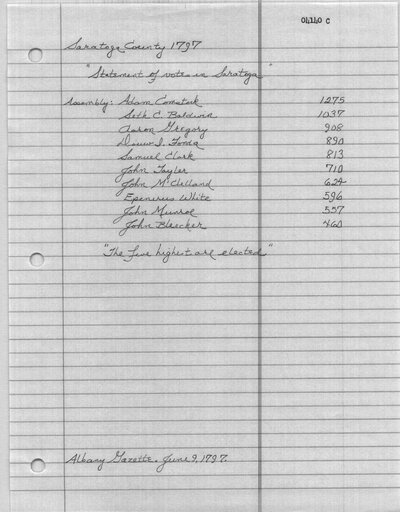 04140 C
Saratoga County 1797
"Statement of votes in Saratoga"
Assembly: Adam Comstock 1275
Seth C. Baldwin 1037
Aaron Gregory 908
Douw I. Fonda 890
Samuel Clark 813
John Tayler 710
John McClelland 624
Epenerus White 596
John Munroe 557
John Bleecker 460
"The five highest are elected"
Albany Gazette. June 9, 1797.